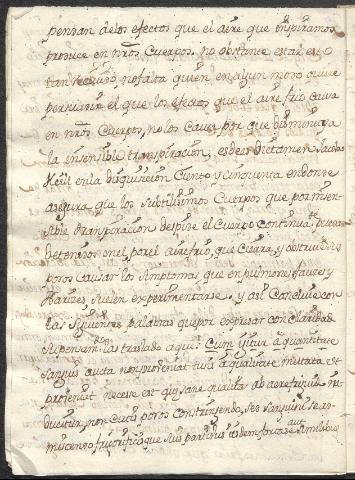 pensan de los efectos que el aire que inspiramos
produce en nrõs Cuerpos. no obstante estar esto
tan seguro, no falta quien en algun modo quiere
persuadir el que los efectos que el aire frio causa
en nrõs Cuerpos, no los causa por que disminuya
la insensible transpiracion, es de este dictamen
en la disquisicion Ciento y Cinquenta en donde
asegura que los subtilissimos Cuerpos que por insen-
sible transpiracion despide el Cuerpo continuamte
detenidos en el por el aire frio, que cierra, y obstruye los
poros causar los simptomas que en pulmones fauces y
narizes suelen experimentarse. y asi Concluie con
las siguientes palabras que por expresar con claridad
su pensamto las traslado aqui. Cum igitur a quantitate
sanguis aucta non proveniat tusis a qualitate mutata et
proveniat necesse est qui sane qualitas ab aere frigido in
ducitur, non cutis poros constringendo, sed sanguini se im-
miscendo frigorificoque suis partibus